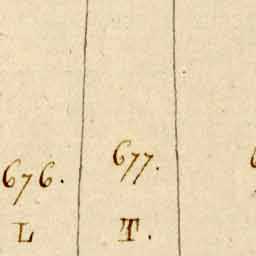 676. 677.
L T.